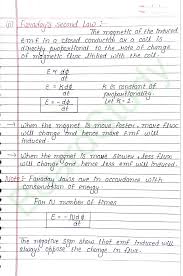 (ii) Faraday's Second Law :-
The magnetic of the induced
e.m.f in a closed conductor or a coil is
directly proportional to the rate of change
of magnetic flux linked with the coil.
E ∝ dφ
dt
E = K dφ
dt
K is constant of
proportionality
Let K = 1
E = - dφ
dt
→ When the magnet is move faster, more flux
will change and hence more E.m.f will
Induced.
→ When the magnet is move slower, less flux
will change and hence less emf will Induced.
Note:- Faraday laws are in accordance with
conservation of energy
For N number of times
E = - N dφ
dt
The negative sign show that emf induced will
always oppose the change in flux.